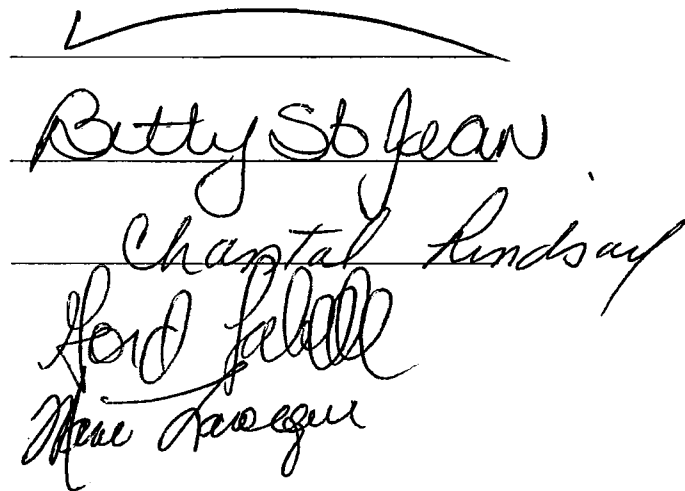 Betty St Jean
Chantal Lindsay
Gord Labelle
Marc Larocque